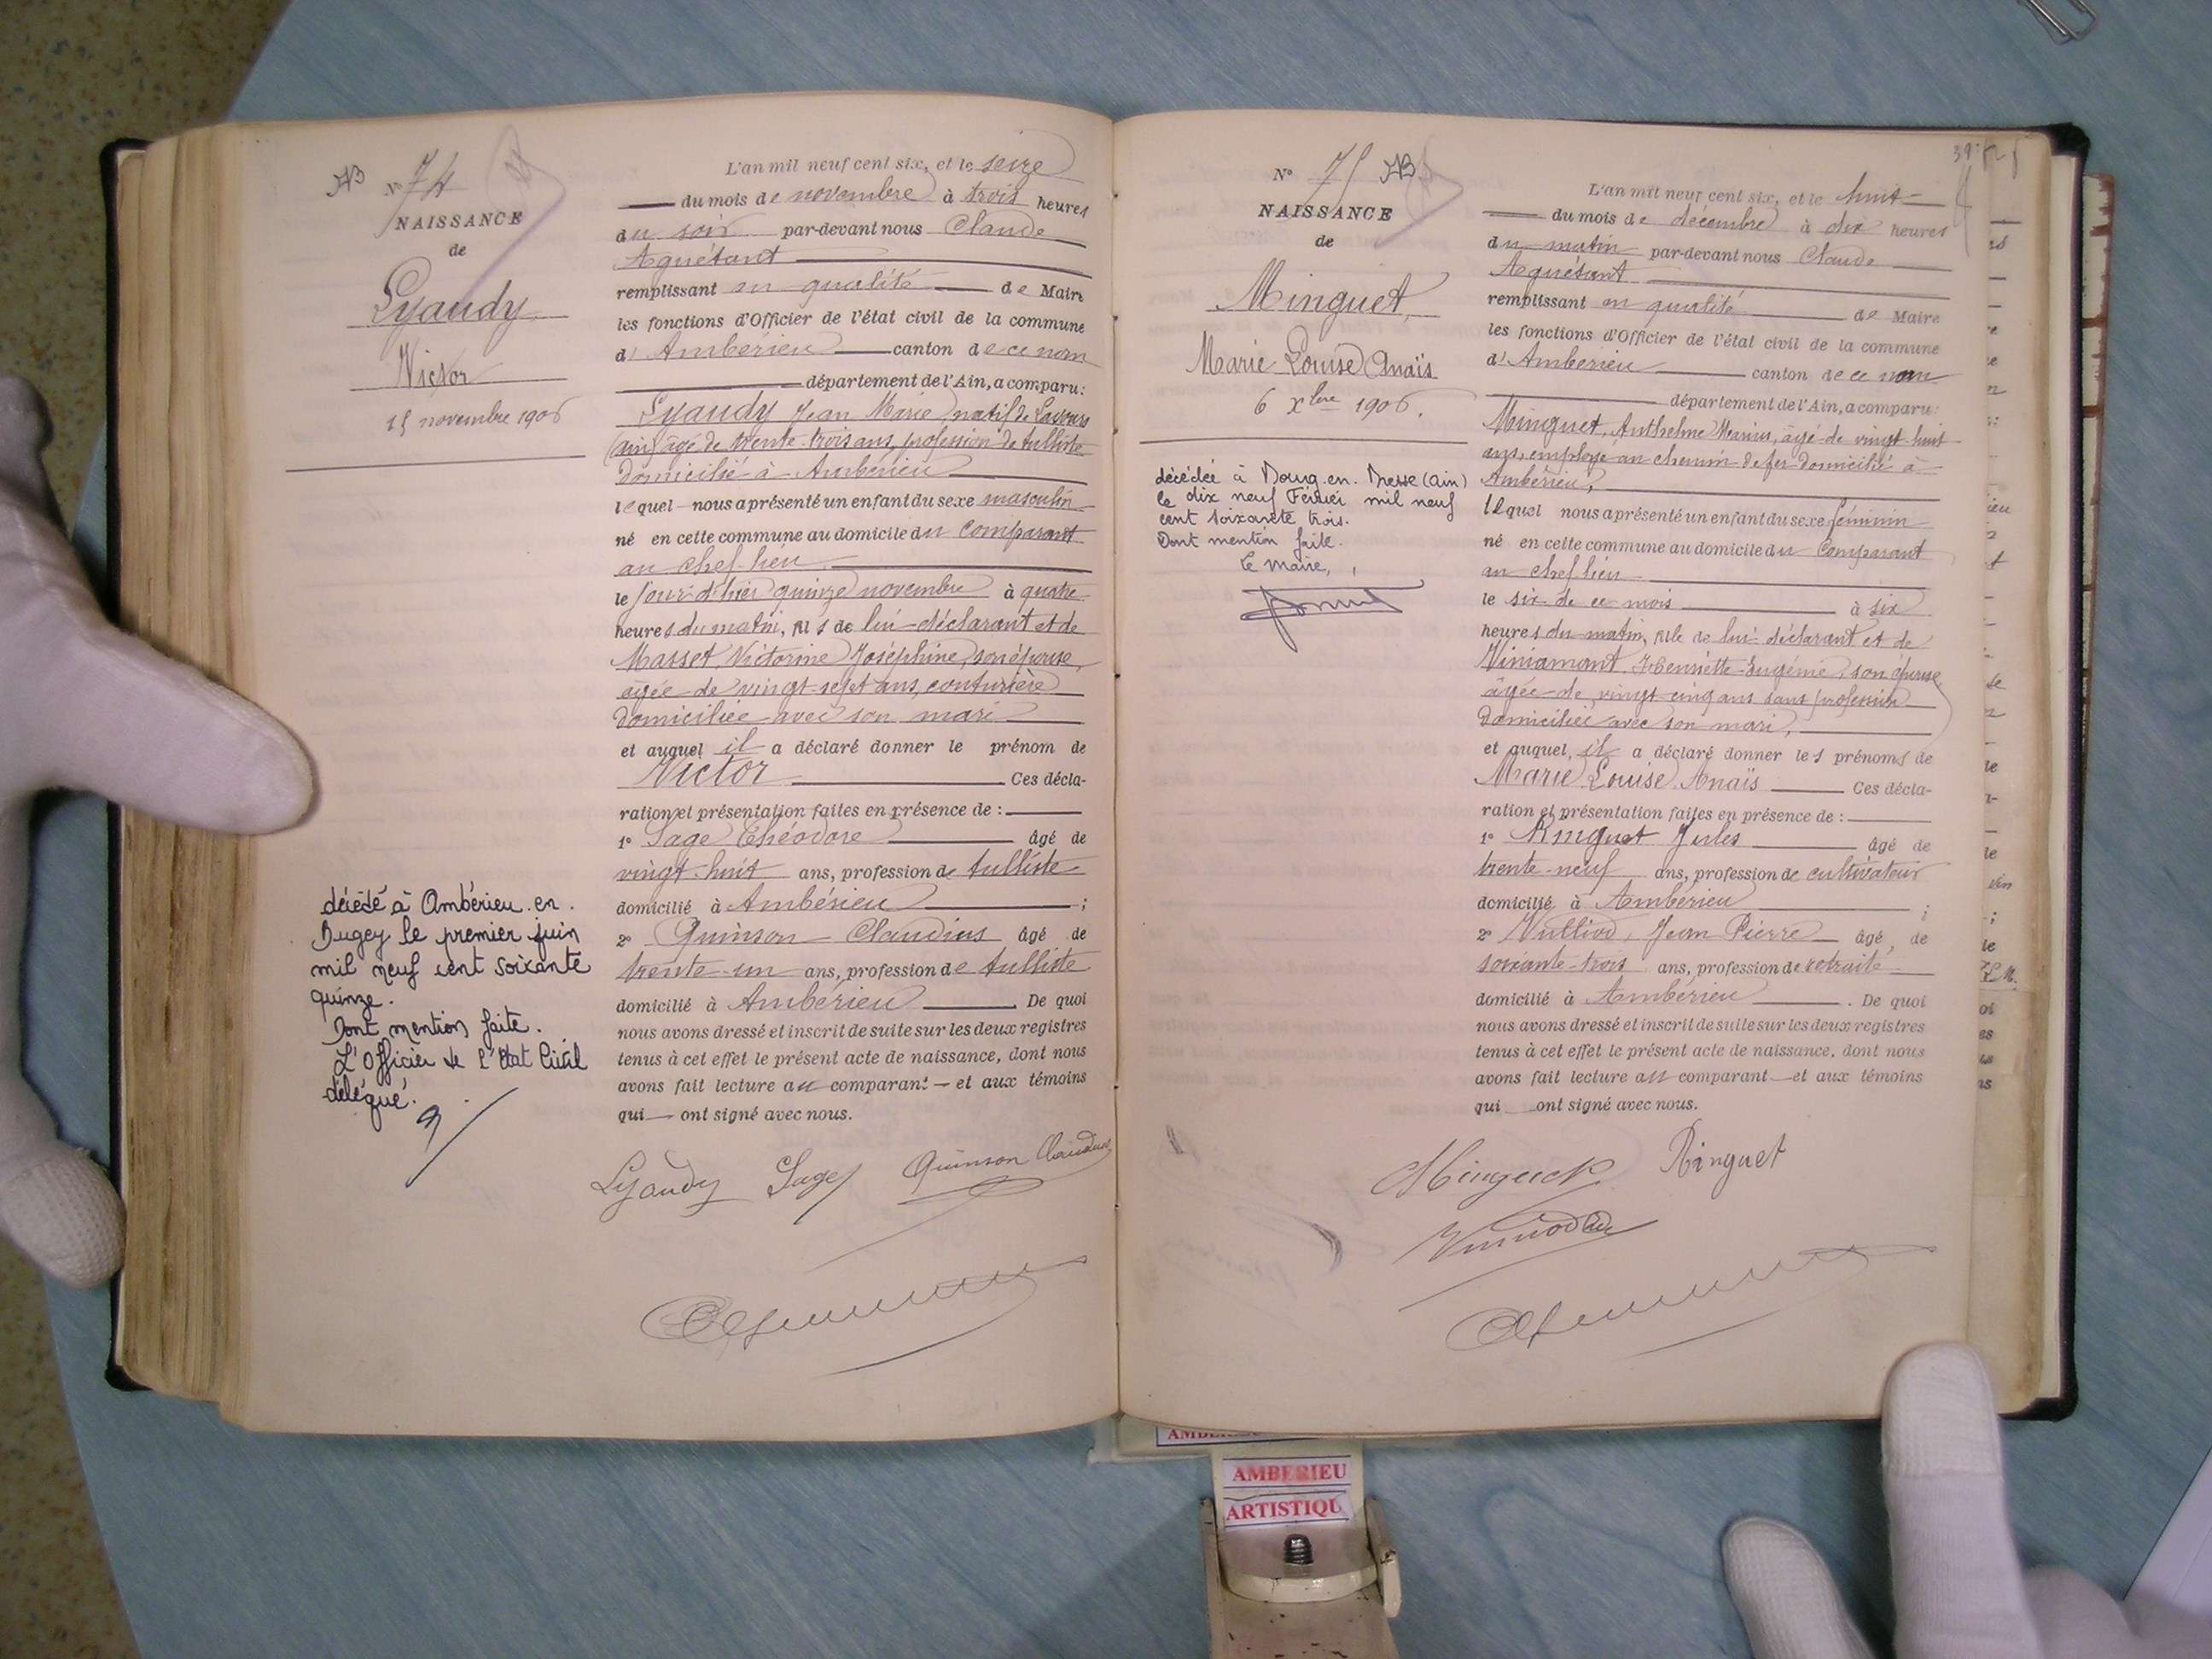 N° 74
NAISSANCE
de
Lyaudy
Victor
15 novembre 1906
décédé à Ambérieu-en-
Bugey le premier juin
mil neuf cent soixante
quinze.
Dont mention faite.
L'Officier de l'Etat Civil
délégué.
L'an mil neuf cent six, et le seize
du mois de novembre à trois heures
du soir par-devant nous Claude
Aguétant
remplissant en qualité de Maire
les fonctions d'Officier de l'état civil de la commune
d'Ambérieu canton de ce nom
département de l'Ain, a comparu:
Lyaudy Jean Marie natif de Lavours
(ain) âgé de trente-trois ans, profession de tulliste
domicilié à Ambérieu
lequel nous a présenté un enfant du sexe masculin
né en cette commune au domicile du comparant
au chef-lieu
le jour d'hier quinze novembre à quatre
heures du matin, fils de lui déclarant et de
Masset, Victorine Joséphine, son épouse,
âgée de vingt-sept ans, couturière
domiciliée avec son mari
et auquel il a déclaré donner le prénom de
Victor Ces décla-
ration et présentation faites en présence de :
1° Sage Théodore âgé de
vingt-huit ans, profession de tulliste
domicilié à Ambérieu ;
2° Quinson Claudius âgé de
trente-un ans, profession de tulliste
domicilié à Ambérieu . De quoi
nous avons dressé et inscrit de suite sur les deux registres
tenus à cet effet le présent acte de naissance, dont nous
avons fait lecture au comparant et aux témoins
qui ont signé avec nous.
Lyaudy Sage Quinson Claudius
N° 75
NAISSANCE
de
Minguet,
Marie Louise Anaïs
6 Xbre 1906.
décédée à Bourg-en-Bresse (Ain)
le dix neuf Février mil neuf
cent soixante trois.
Dont mention faite.
Le Maire,
L'an mil neuf cent six, et le huit
du mois de décembre à dix heures
du matin par-devant nous Claude
Aguétant
remplissant en qualité de Maire
les fonctions d'Officier de l'état civil de la commune
d'Ambérieu canton de ce nom
département de l'Ain, a comparu:
Minguet, Anthelme Marius, âgé de vingt-huit
ans, employé au chemin de fer domicilié à
Ambérieu,
lequel nous a présenté un enfant du sexe féminin
né en cette commune au domicile du comparant
au chef-lieu
le six de ce mois à six
heures du matin, fille de lui déclarant et de
Viniamont, Henriette Eugénie, son épouse
âgée de vingt cinq ans sans profession
domiciliée avec son mari,
et auquel, il a déclaré donner les prénoms de
Marie Louise Anaïs Ces décla-
ration et présentation faites en présence de :
1° Ringuet Jules âgé de
trente-neuf ans, profession de cultivateur
domicilié à Ambérieu ;
2° Vulliod, Jean Pierre âgé de
soixante-trois ans, profession de retraité
domicilié à Ambérieu . De quoi
nous avons dressé et inscrit de suite sur les deux registres
tenus à cet effet le présent acte de naissance, dont nous
avons fait lecture au comparant et aux témoins
qui ont signé avec nous.
Minguet Ringuet
AMBERIEU
ARTISTIQU